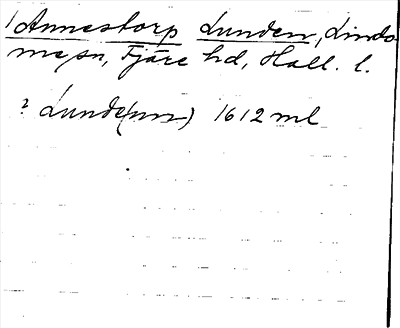 Annestorp Lunden, Lindo
me sn, Fjäre hd, Hall. l.
? Lunde(nn) 1612 ml